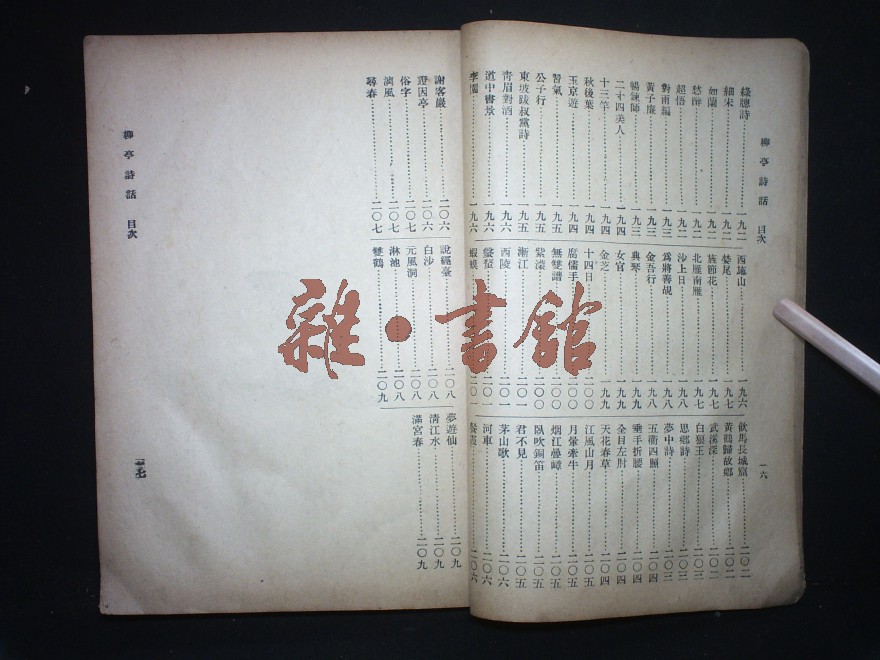 柳亭詩話 目次
一六
綠聰詩……一九二
細宋……一九二
如蘭……一九二
愁醉……一九二
超悟……一九二
對雨編……一九三
黃子廉……一九三
暢鍊師……一九三
二十四美人……一九四
十三竿……一九四
秋後葉……一九四
玉京遊……一九四
習氣……一九五
公子行……一九五
東坡跋叔黨詩……一九五
青眉對酒……一九六
道中書景……一九六
西施山……一九六
婪尾……一九七
旌節花……一九七
北雁南雁……一九七
沙上日……一九八
爲將善覘……一九八
金吾行……一九八
典琴……一九九
女官……一九九
金芝……一九九
十四日……二〇〇
腐儒手……二〇〇
無雙譜……二〇〇
紫濛……二〇〇
漸江……二〇一
西陵……二〇一
飲馬長城窟……二〇二
黃鶴歸故鄉……二〇二
武溪深……二〇二
白狼王……二〇三
思鄉詩……二〇三
夢中詩……二〇三
五衢四照……二〇四
垂手折腰……二〇四
全目左肘……二〇四
天花春草……二〇四
江風山月……二〇五
月暈牽牛……二〇五
烟江疊嶂……二〇五
臥吹銅笛……二〇五
君不見……二〇五
茅山歌……二〇六
河車……二〇六
謝客巖……二〇六
證因亭……二〇六
俗字……二〇七
滴風……二〇七
尋春……二〇七
說經臺……二〇八
白沙……二〇八
元風洞……二〇八
淋池……二〇八
雙鶴……二〇九
夢遊仙……二〇九
清江水……二〇九
滿宮春……二〇九
柳亭詩話 目次
雜·書舘